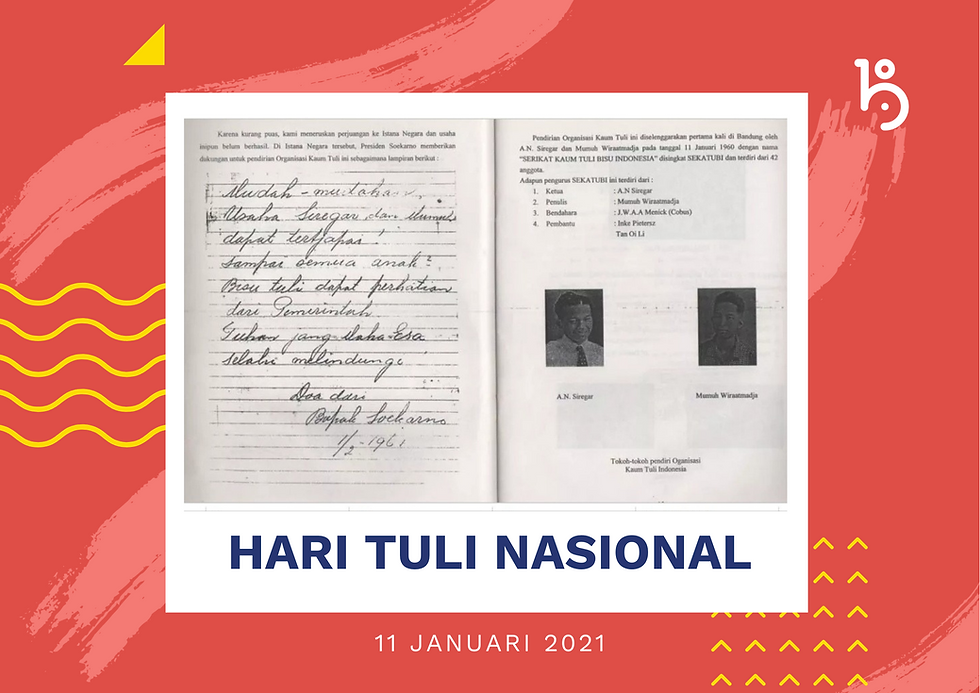 Karena kurang puas, kami meneruskan perjuangan ke Istana Negara dan usaha
inipun belum berhasil. Di Istana Negara tersebut, Presiden Soekarno memberikan
dukungan untuk pendirian Organisasi Kaum Tuli ini sebagaimana lampiran berikut :
Mudah-mudahan
Usaha Siregar dan Mumuh
dapat tertjapai !
Sampai semua anak2
Bisu tuli dapat perhatian
dari Pemerintah.
Tuhan jang Maha-Esa
selalu melindungi
Doa dari
Bapak Soekarno
1/2-1961
Pendirian Organisasi Kaum Tuli ini diselenggarakan pertama kali di Bandung oleh
A.N. Siregar dan Mumuh Wiraatmadja pada tanggal 11 Januari 1960 dengan nama
"SERIKAT KAUM TULI BISU INDONESIA" disingkat SEKATUBI dan terdiri dari 42
anggota.
Adapun pengurus SEKATUBI ini terdiri dari :
1. Ketua : A.N Siregar
2. Penulis : Mumuh Wiraatmadja
3. Bendahara : J.W.A.A Menick (Cobus)
4. Pembantu : Inke Pietersz
Tan Oi Li
A.N. Siregar
Mumuh Wiraatmadja
Tokoh-tokoh pendiri Oganisasi
Kaum Tuli Indonesia
HARI TULI NASIONAL
11 JANUARI 2021